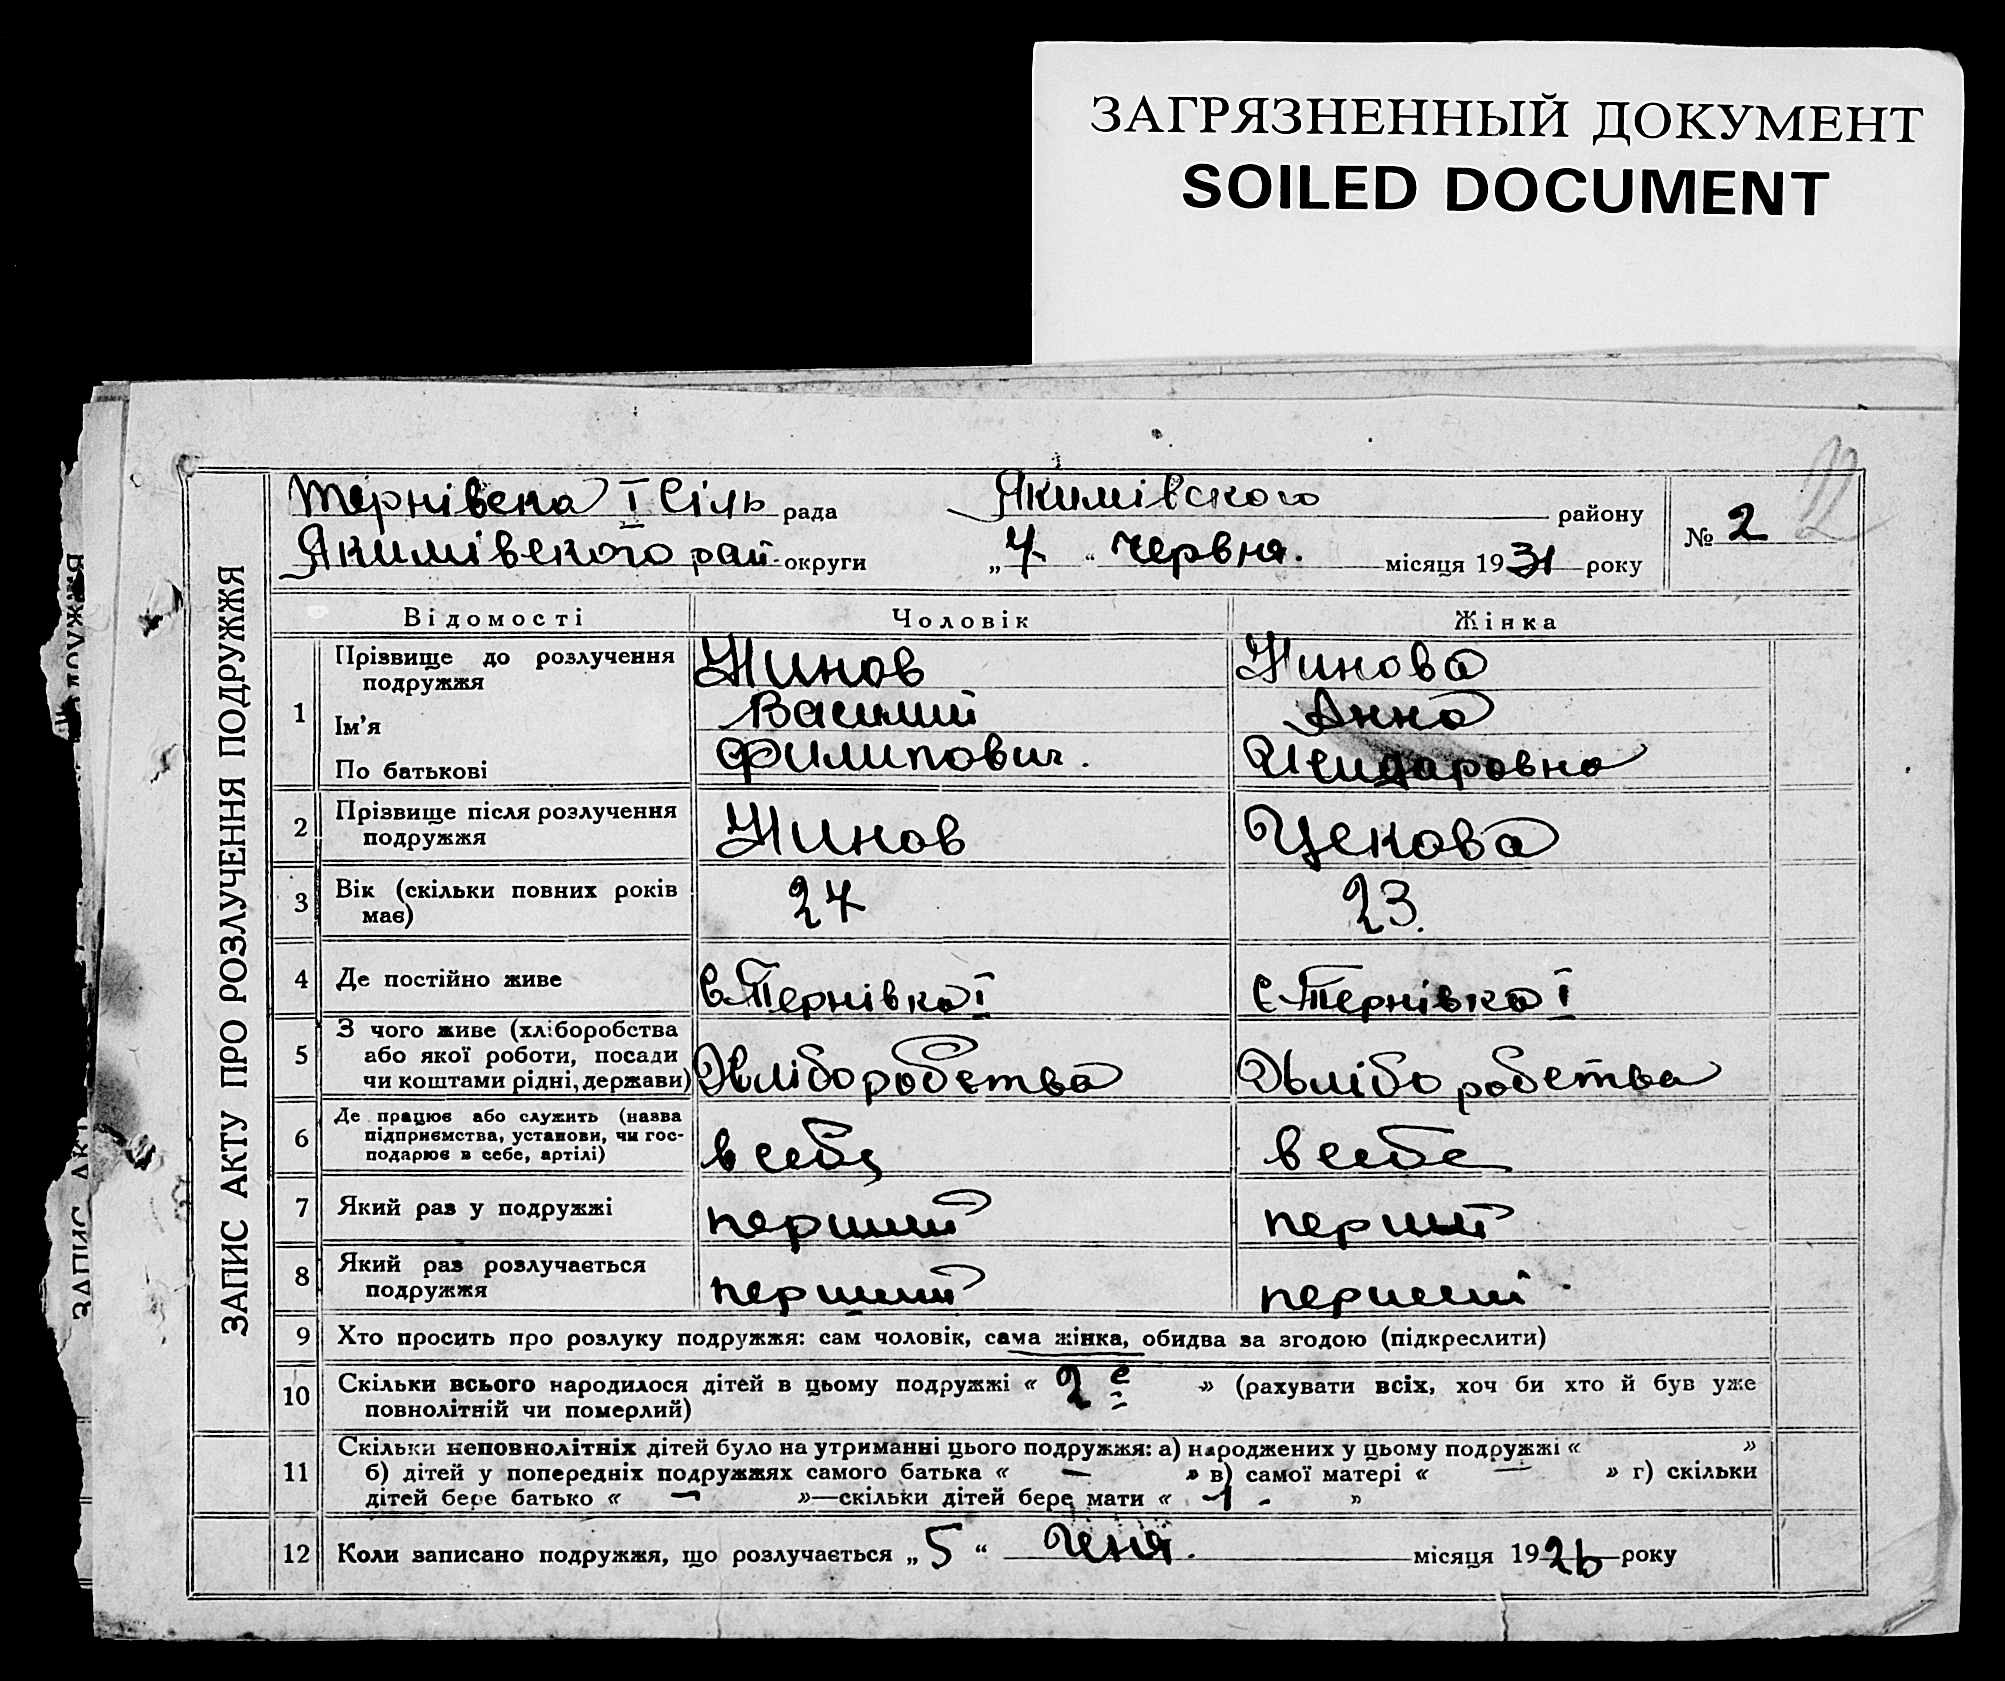 ЗАГРЯЗНЕННЫЙ ДОКУМЕНТ
SOILED DOCUMENT
ЗАПИС АКТУ ПРО РОЗЛУЧЕННЯ ПОДРУЖЖЯ
Тернівска І Сіль рада Якимівского району
№ 2
12
Якимівского рай. округи „ 7 “ червня. місяця 1931 року
Відомості Чоловік Жінка
1 Прізвище до розлучення подружжя Жинов Жинова
Ім'я Василий Анна
По батькові Филипович. Исидаровна
2 Прізвище після розлучення подружжя Жинов Цекова
3 Вік (скільки повних років має) 24 23.
4 Де постійно живе с Тернівка І с Тернівка І
5 З чого живе (хліборобства або якої роботи, посади чи коштами рідні, держави) Хліборобства Хліборобства
6 Де працює або служить (назва підприємства, установи, чи господарює в себе, артілі) в себе в себе
7 Який раз у подружжі перший перший
8 Який раз розлучається подружжя перший перший.
9 Хто просить про розлуку подружжя: сам чоловік, сама жінка, обидва за згодою (підкреслити)
10 Скільки всього народилося дітей в цьому подружжі « 2е » (рахувати всіх, хоч би хто й був уже
повнолітній чи померлий)
11 Скільки неповнолітніх дітей було на утриманні цього подружжя: а) народжених у цьому подружжі « »
б) дітей у попередніх подружжях самого батька « — » в) самої матері « — » г) скільки
дітей бере батько « — »—скільки дітей бере мати « 1 - »
12 Коли записано подружжя, що розлучається „ 5 “ місяця 1926 року